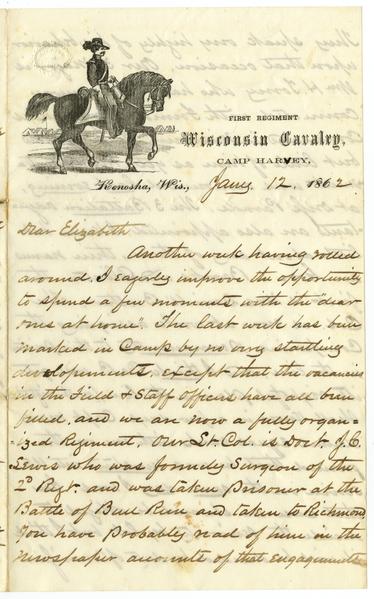 FIRST REGIMENT
Wisconsin Cavalry,
CAMP HARVEY,
Kenosha, Wis., Jany 12, 1862
Dear Elizabeth
Another week having rolled
around, I eagerly improve the opportunity
to spend a few moments with the dear
ones at home". The last week has been
marked in Camp by no very startling
developements, except that the vacancies
in the Field & Staff Officers have all been
filled, and we are now a fully organ=
=ized Regiment. Our Lt. Col. is Doct. J.C.
Lewis who was formely Surgeon of the
2D Regt. and was taken Prisoner at the
Battle of Bull Run and taken to Richmond
You have Probably read of him in the
newspaper accounts of that Engagement